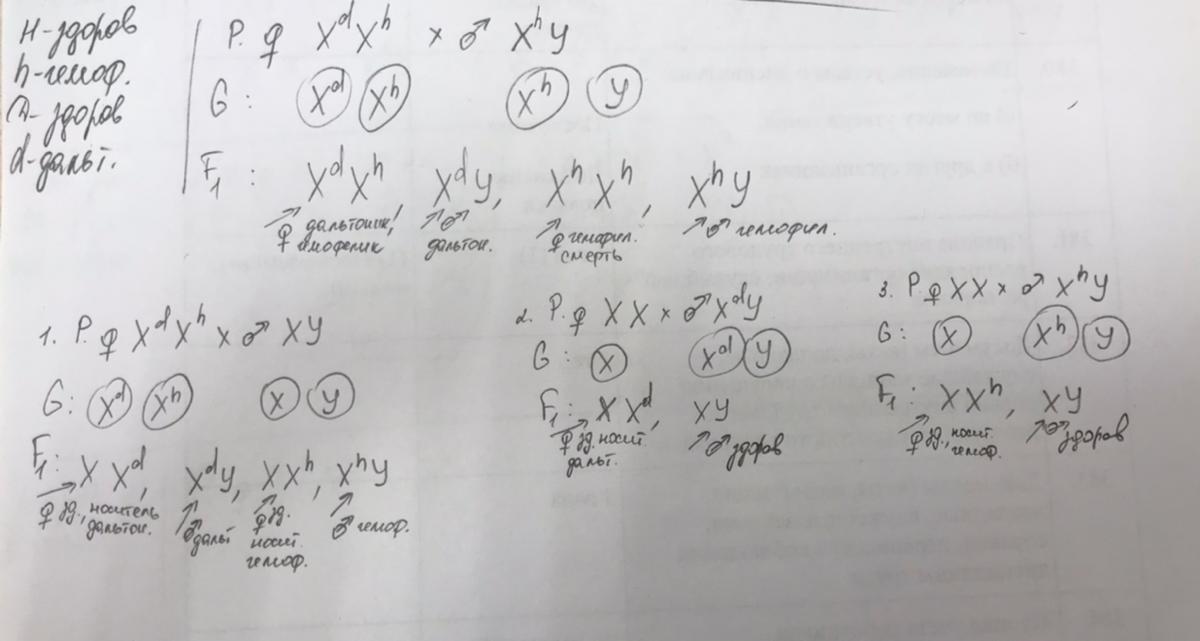 H - здоров
h - гемоф.
D - здоров
d - дальт.
P. ♀ XᵈXʰ × ♂ XʰY
G: Xᵈ Xʰ Xʰ Y
F₁: XᵈXʰ, XᵈY, XʰXʰ, XʰY
♀ дальтоник!
♂ дальтон.
♀ гемофил. смерть
♂ гемофил.
1. P. ♀ XᵈXʰ × ♂ XY
G: Xᵈ Xʰ X Y
F₁: XXᵈ, XᵈY, XXʰ, XʰY
♀ зд., носитель дальтон.
♂ дальт
♀ зд. носит. гемоф.
♂ гемоф.
2. P. ♀ XX × ♂ XᵈY
G: X Xᵈ Y
F₁: XXᵈ, XY
♀ зд. носит. дальт.
♂ здоров
3. P. ♀ XX × ♂ XʰY
G: X Xʰ Y
F₁: XXʰ, XY
♀ зд., носит. гемоф.
♂ здоров